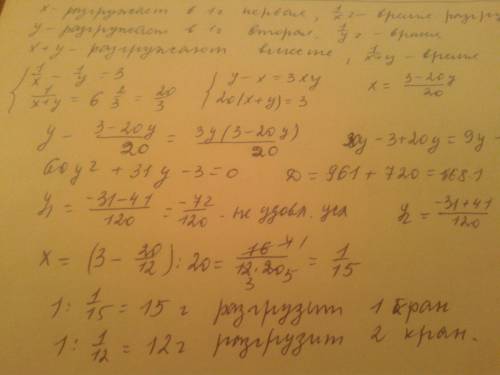 x - разгружает в 1ч первая, 1/x ч - время разгру
y - разгружает в 1ч вторая. 1/y ч - время
x+y - разгружают вместе, 1/x+y - время
{ 1/x - 1/y = 3 { y - x = 3xy x = 3-20y/20
1/x+y = 6 2/3 = 20/3 20(x+y) = 3
y - 3-20y/20 = 3y(3-20y)/20 20y - 3+20y = 9y -
60y² + 31y - 3 = 0 D = 961 + 720 = 1681
y₁ = -31-41/120 = -72/120 - не удовл. усл y₂ = -31+41/120
x = (3 - 20/12) : 20 = 16 4 1/12·20 3 5 = 1/15
1 : 1/15 = 15 ч разгрузит 1 кран
1 : 1/12 = 12 ч разгрузит 2 кран.